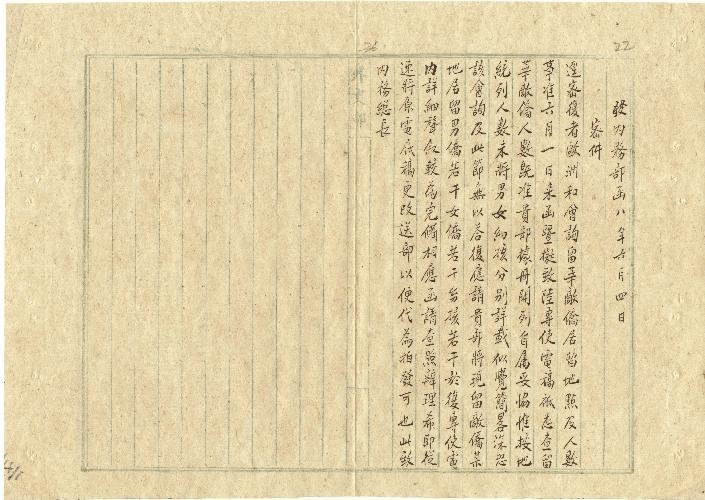 22
26
發內務部函八年六月四日
密件
逕密復者歐洲和會詢留華敵僑居留地點及人數
事准六月一日來函暨擬致陸專使電稿祗悉查留
華敵僑人數既准貴部據冊開列自屬妥協惟按地
統列人數未將男女幼孩分別詳載似覺簡畧深恐
該會詢及此節無以答復應請貴部將現留敵僑某
地居留男僑若干女僑若干幼孩若干於復專使電
內詳細聲敘較為完備相應函請查照辦理希即從
速將原電底稿更改送部以便代為拍發可也此致
內務總長